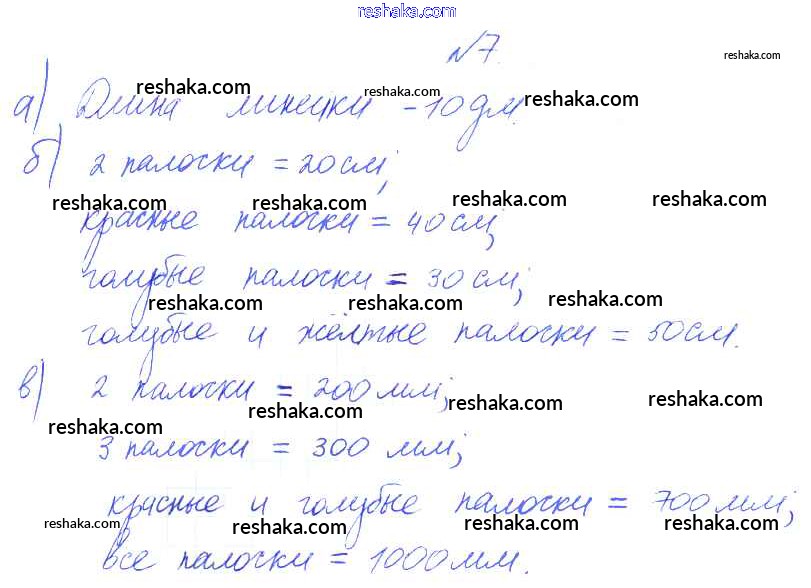 reshaka.com
№7.
reshaka.com
а) Длина линейки - 10 дм.
reshaka.com reshaka.com reshaka.com
б) 2 палоски = 20 см;
reshaka.com reshaka.com reshaka.com reshaka.com
красные палочки = 40 см;
голубые палоски = 30 см;
reshaka.com reshaka.com reshaka.com
голубые и жёлтые палоски = 50 см.
в) 2 палоски = 200 мм;
reshaka.com reshaka.com reshaka.com reshaka.com
3 палоски = 300 мм;
красные и голубые палоски = 700 мм;
reshaka.com reshaka.com reshaka.com reshaka.com
все палоски = 1000 мм.